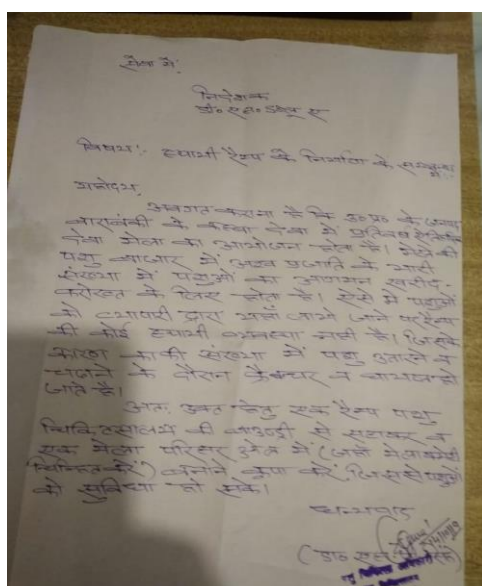 सेवा में,
निदेशक
डी० एन० डब्लू ए
विषय:- स्थायी रैम्प के निर्माण के सम्बन्ध में।
महोदय,
अवगत कराना है कि उ०प्र० के जनपद
बाराबंकी के कस्बा देवा में प्रतिवर्ष
देवा मेला का आयोजन होता है। मेले की
पशु बाजार में अश्व प्रजाति के भारी
संख्या में पशुओं का आगमन खरीद-
फरोख्त के लिए होता है। ऐसे में पशुओं
को व्यापारी द्वारा यहाँ लाये जाने पर रैम्प
की कोई स्थायी व्यवस्था नही है। जिसके
कारण काफी संख्या में पशु उतारने व
चढाने के दौरान फ्रैक्चर व घायल हो
जाते है।
अतः उक्त हेतु एक रैम्प पशु
चिकित्सालय की बाउण्ड्री से सटाकर व
एक मेला परिसर क्षेत्र में (जहाँ मेला कमेटी
चिन्हित करे) बनाने कृपा करें जिससे पशुओं
को सुविधा हो सके।
धन्यवाद
(डा०
पशु चिकित्सा अधिकारी